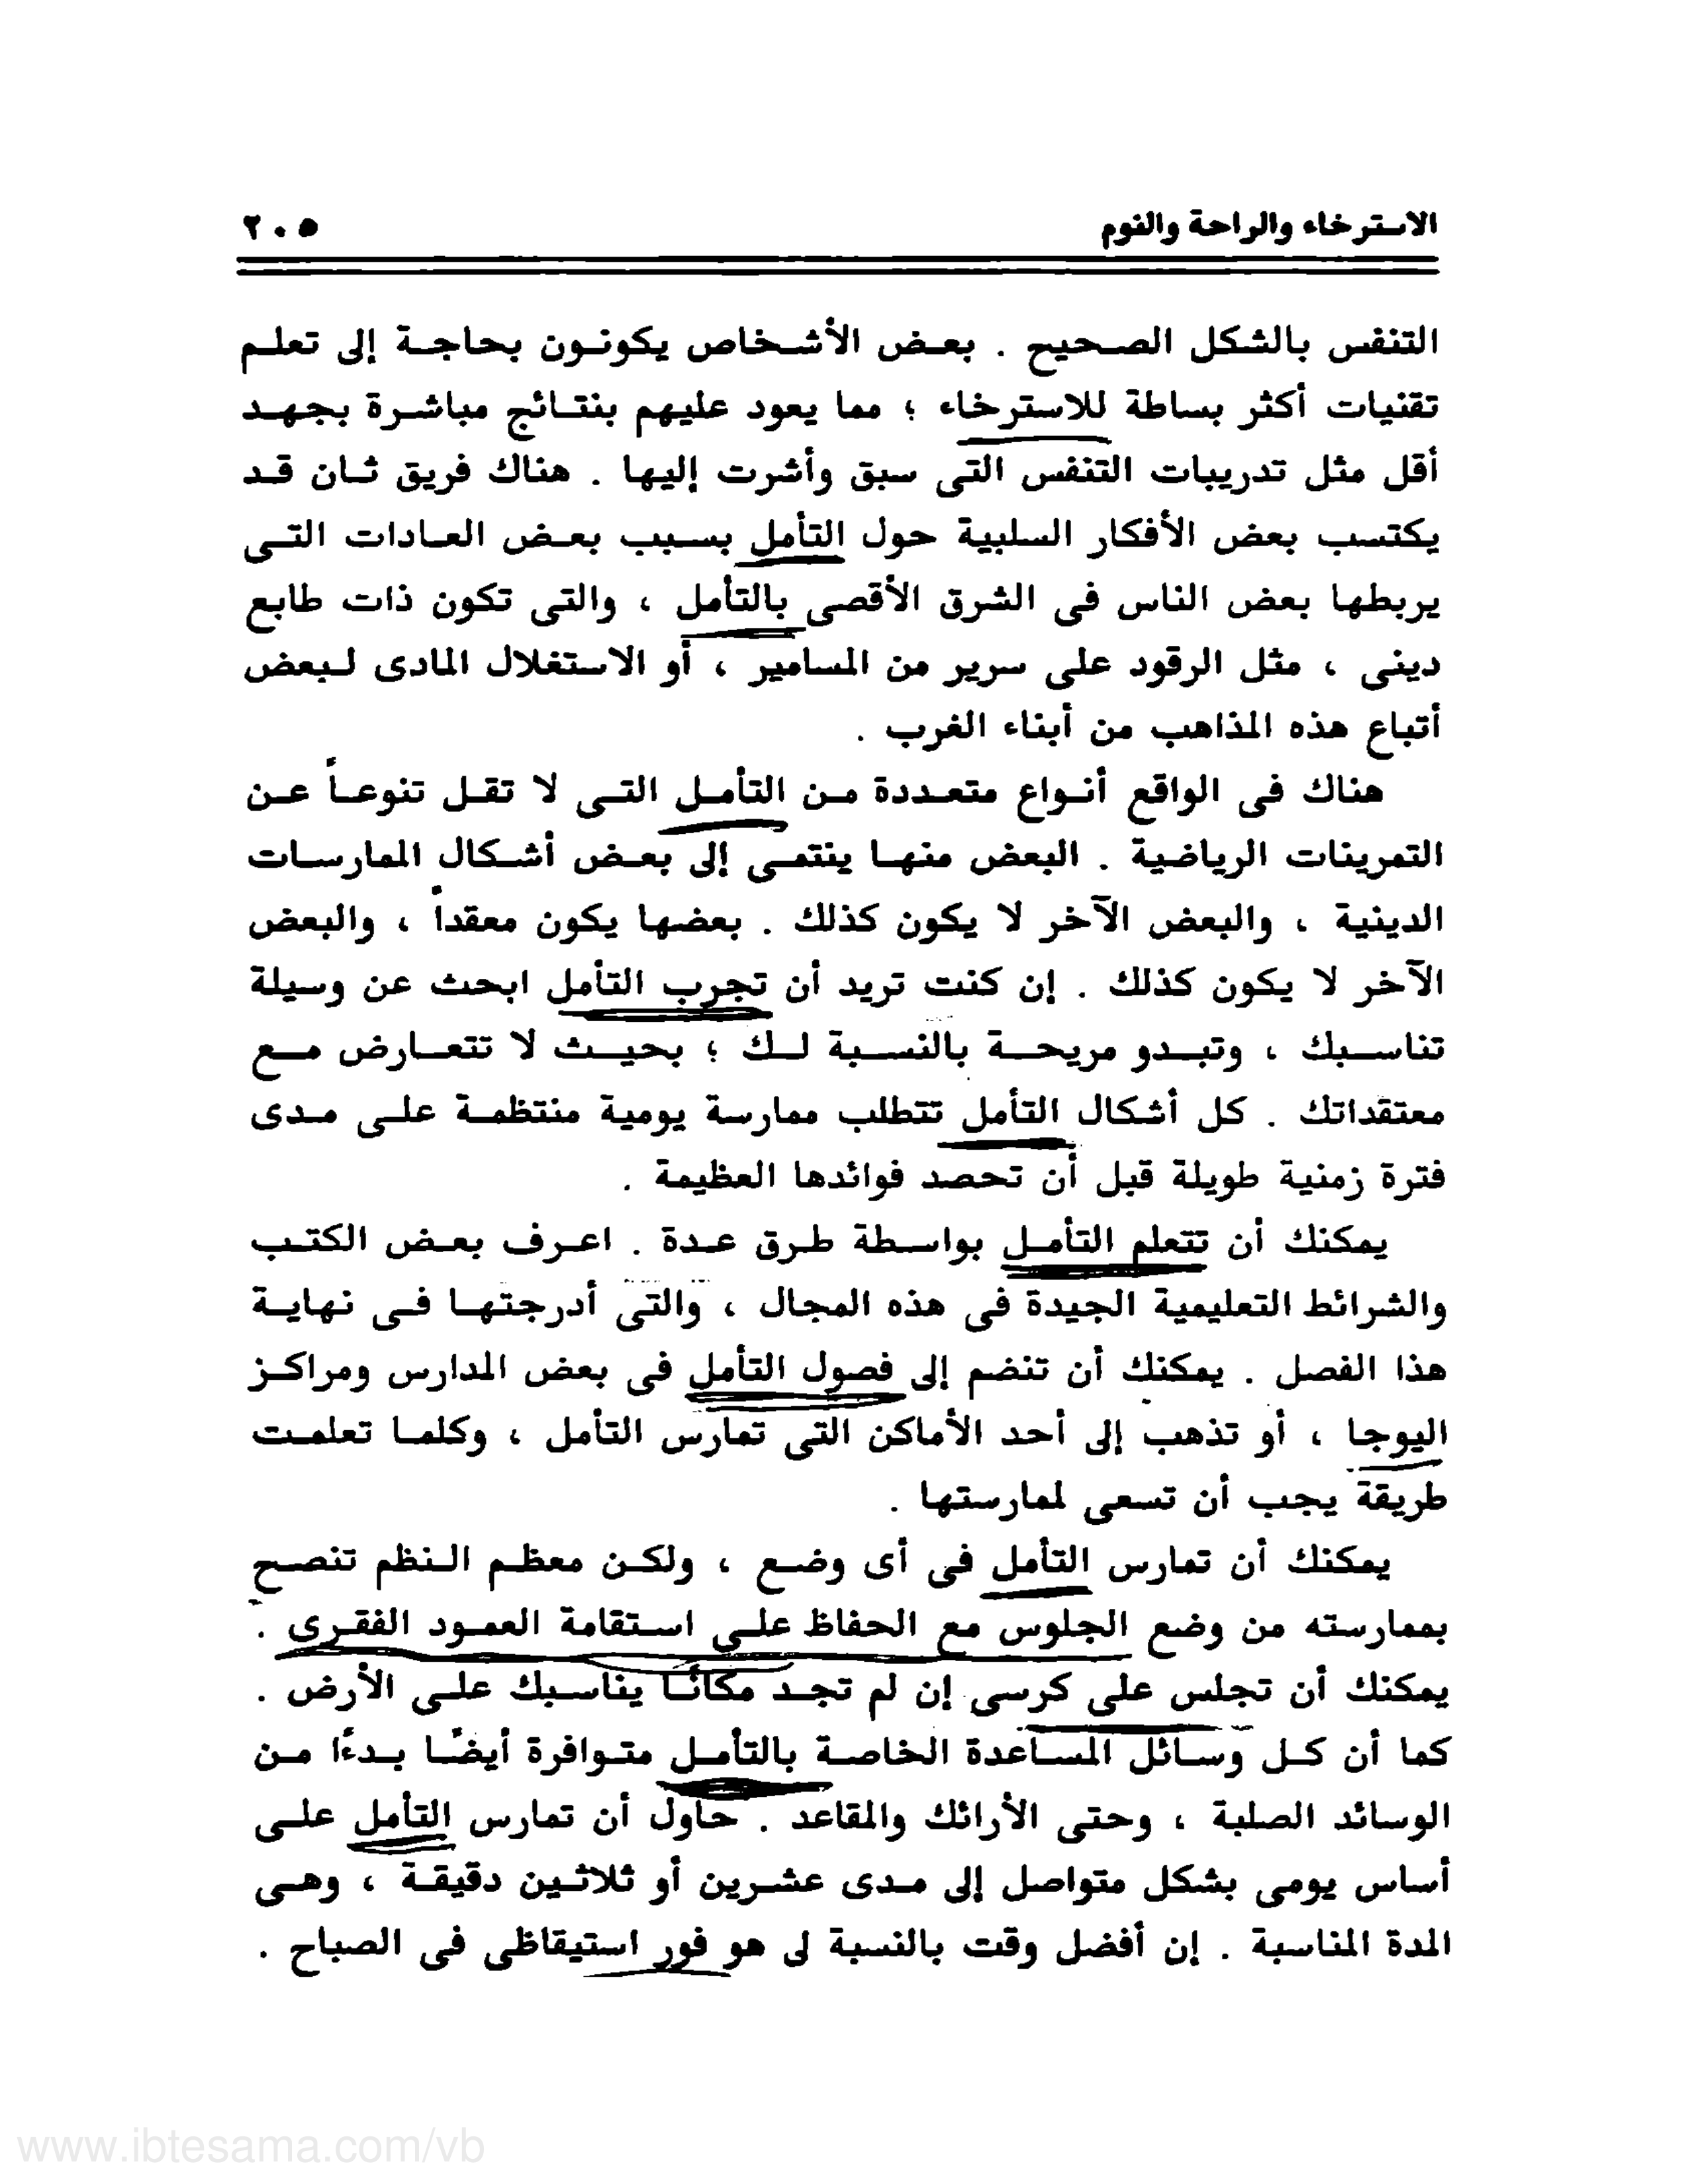 الاسترخاء والراحة والنوم ٢٠٥
التنفس بالشكل الصحيح . بعض الأشخاص يكونون بحاجة إلى تعلم
تقنيات أكثر بساطة للاسترخاء ؛ مما يعود عليهم بنتائج مباشرة بجهد
أقل مثل تدريبات التنفس التى سبق وأشرت إليها . هناك فريق ثان قد
يكتسب بعض الأفكار السلبية حول التأمل بسبب بعض العادات التى
يربطها بعض الناس فى الشرق الأقصى بالتأمل ، والتى تكون ذات طابع
دينى ، مثل الرقود على سرير من المسامير ، أو الاستغلال المادى لبعض
أتباع هذه المذاهب من أبناء الغرب .
هناك فى الواقع أنواع متعددة من التأمل التى لا تقل تنوعاً عن
التمرينات الرياضية . البعض منها ينتمى إلى بعض أشكال الممارسات
الدينية ، والبعض الآخر لا يكون كذلك . بعضها يكون معقداً ، والبعض
الآخر لا يكون كذلك . إن كنت تريد أن تجرب التأمل ابحث عن وسيلة
تناسبك ، وتبدو مريحة بالنسبة لك ؛ بحيث لا تتعارض مع
معتقداتك . كل أشكال التأمل تتطلب ممارسة يومية منتظمة على مدى
فترة زمنية طويلة قبل أن تحصد فوائدها العظيمة .
يمكنك أن تتعلم التأمل بواسطة طرق عدة . اعرف بعض الكتب
والشرائط التعليمية الجيدة فى هذه المجال ، والتى أدرجتها فى نهاية
هذا الفصل . يمكنك أن تنضم إلى فصول التأمل فى بعض المدارس ومراكز
اليوجا ، أو تذهب إلى أحد الأماكن التى تمارس التأمل ، وكلما تعلمت
طريقة يجب أن تسعى لممارستها .
يمكنك أن تمارس التأمل فى أى وضع ، ولكن معظم النظم تنصح
بممارسته من وضع الجلوس مع الحفاظ على استقامة العمود الفقرى .
يمكنك أن تجلس على كرسى إن لم تجد مكانًا يناسبك على الأرض .
كما أن كل وسائل المساعدة الخاصة بالتأمل متوافرة أيضًا بدءًا من
الوسائد الصلبة ، وحتى الأرائك والمقاعد . حاول أن تمارس التأمل على
أساس يومى بشكل متواصل إلى مدى عشرين أو ثلاثين دقيقة ، وهى
المدة المناسبة . إن أفضل وقت بالنسبة لى هو فور استيقاظى فى الصباح .
www.ibtesama.com/vb